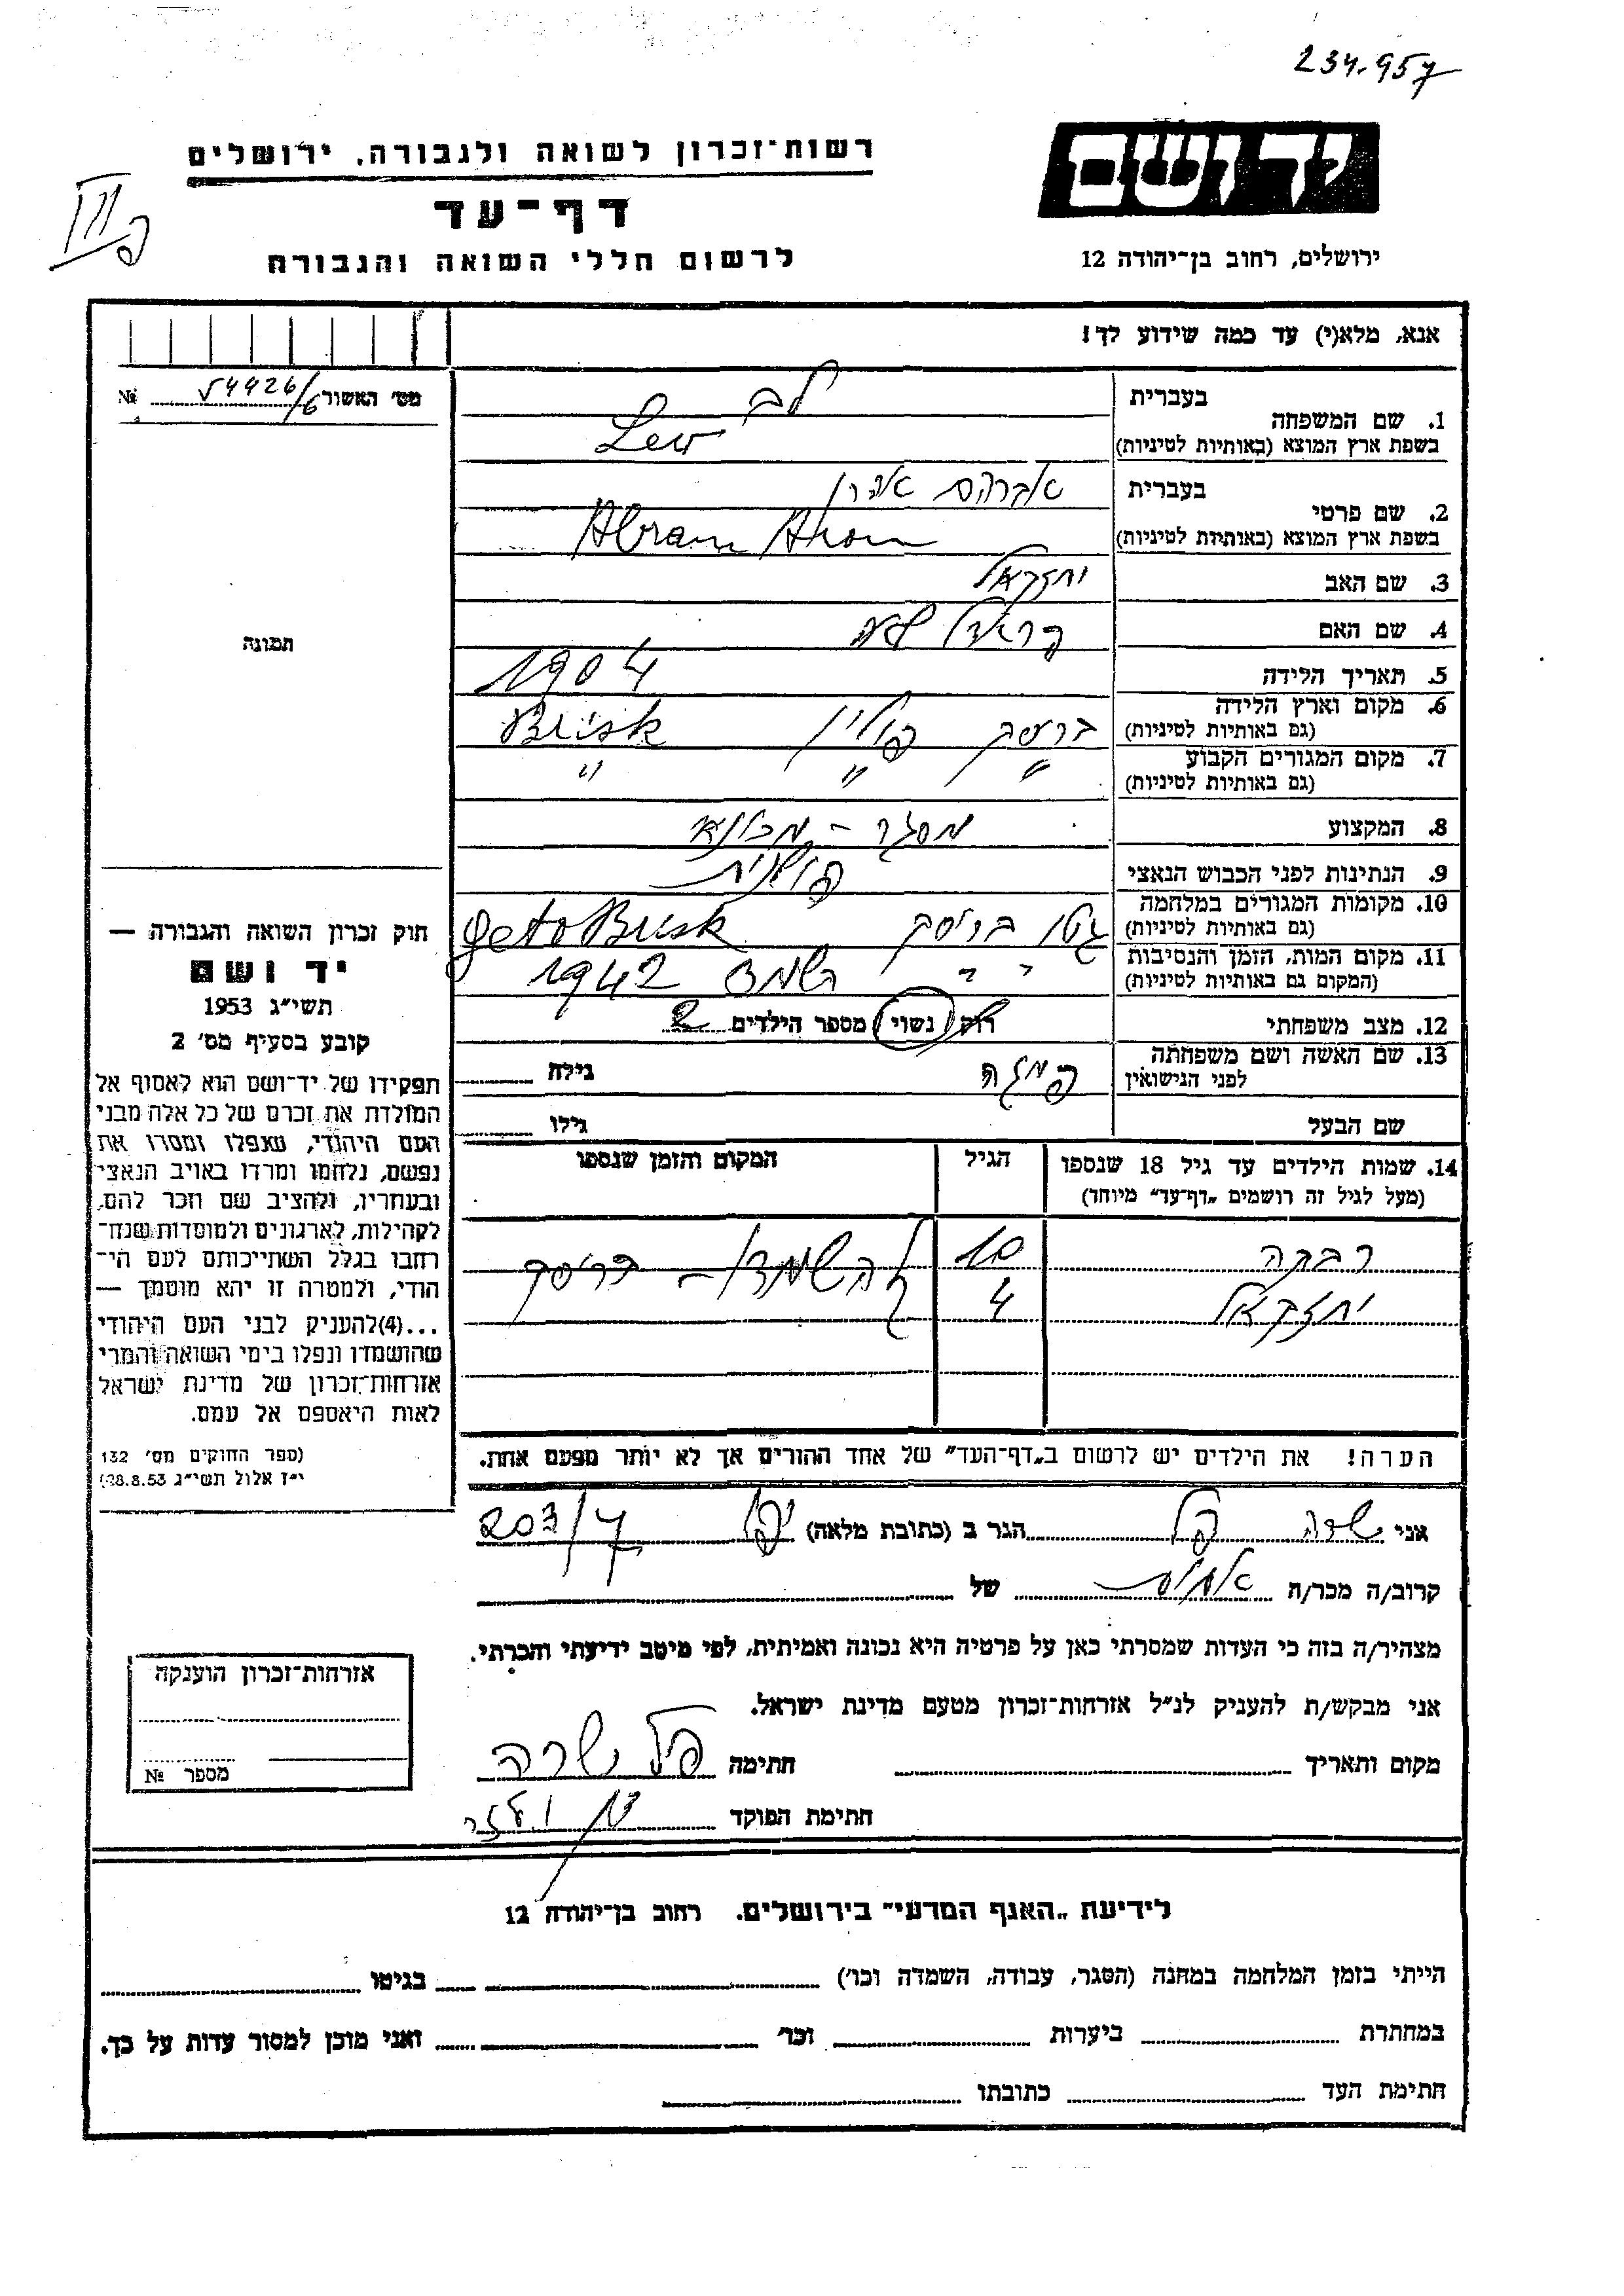 234.957
רשות־זכרון לשואה ולגבורה, ירושלים
יד ושם
דף־עד
לרשום חללי השואה והגבורה
ירושלים, רחוב בן־יהודה 12
אנא, מלא(י) עד כמה שידוע לך!
מס׳ האשור 54426/6 №
בעברית לב
1. שם המשפחה
בשפת ארץ המוצא (באותיות לטיניות) Lew
בעברית אברהם אהרן
2. שם פרטי
בשפת ארץ המוצא (באותיות לטיניות) Abram Aron
3. שם האב יחזקאל
4. שם האם
תמונה
5. תאריך הלידה 1904
6. מקום וארץ הלידה
(גם באותיות לטיניות) בריסק פולין Brisk
7. מקום המגורים הקבוע
(גם באותיות לטיניות) " " "
8. המקצוע מסגר – מכונאי
9. הנתינות לפני הכבוש הנאצי פולנית
10. מקומות המגורים במלחמה
(גם באותיות לטיניות) גטו בריסק geto Brisk
11. מקום המות, הזמן והנסיבות
(המקום גם באותיות לטיניות) " " השמד 1942
12. מצב משפחתי רוק/ נשוי/ מספר הילדים 2
13. שם האשה ושם משפחתה
לפני הנישואין גילה
שם הבעל גילו
14. שמות הילדים עד גיל 18 שנספו הגיל המקום והזמן שנספו
(מעל לגיל זה רושמים „דף־עד״ מיוחד)
רבקה 10 בריסק
יחזקאל 4
הערה! את הילדים יש לרשום ב„דף־העד״ של אחד ההורים אך לא יותר מפעם אחת.
חוק זכרון השואה והגבורה —
יד ושם
תשי״ג 1953
קובע בסעיף מס׳ 2
תפקידו של יד־ושם הוא לאסוף אל
המולדת את זכרם של כל אלה מבני
העם היהודי, שנפלו ומסרו את
נפשם, נלחמו ומרדו באויב הנאצי
ובעוזריו, ולהציב שם וזכר להם,
לקהילות, לארגונים ולמוסדות שנח־
רבו בגלל השתייכותם לעם הי־
הודי, ולמטרה זו יהא מוסמך —
...(4)להעניק לבני העם היהודי
שהושמדו ונפלו בימי השואה והמרי
אזרחות־זכרון של מדינת ישראל
לאות היאספם אל עמם.
(ספר החוקים מס׳ 132
י״ז אלול תשי״ג 28.8.53)
אני שרה פל הגר ב (כתובת מלאה) יפו 203/7
קרוב/ה מכר/ה של
מצהיר/ה בזה כי העדות שמסרתי כאן על פרטיה היא נכונה ואמיתית, לפי מיטב ידיעתי והכרתי.
אני מבקש/ת להעניק לנ״ל אזרחות־זכרון מטעם מדינת ישראל.
מקום ותאריך חתימה פל שרה
חתימת הפוקד
אזרחות־זכרון הוענקה
מספר №
לידיעת „האגף המדעי״ בירושלים. רחוב בן־יהודה 12
הייתי בזמן המלחמה במחנה (הסגר, עבודה, השמדה וכו׳) בגיטו
במחתרת ביערות וכו׳ ואני מוכן למסור עדות על כך.
חתימת העד כתובתו